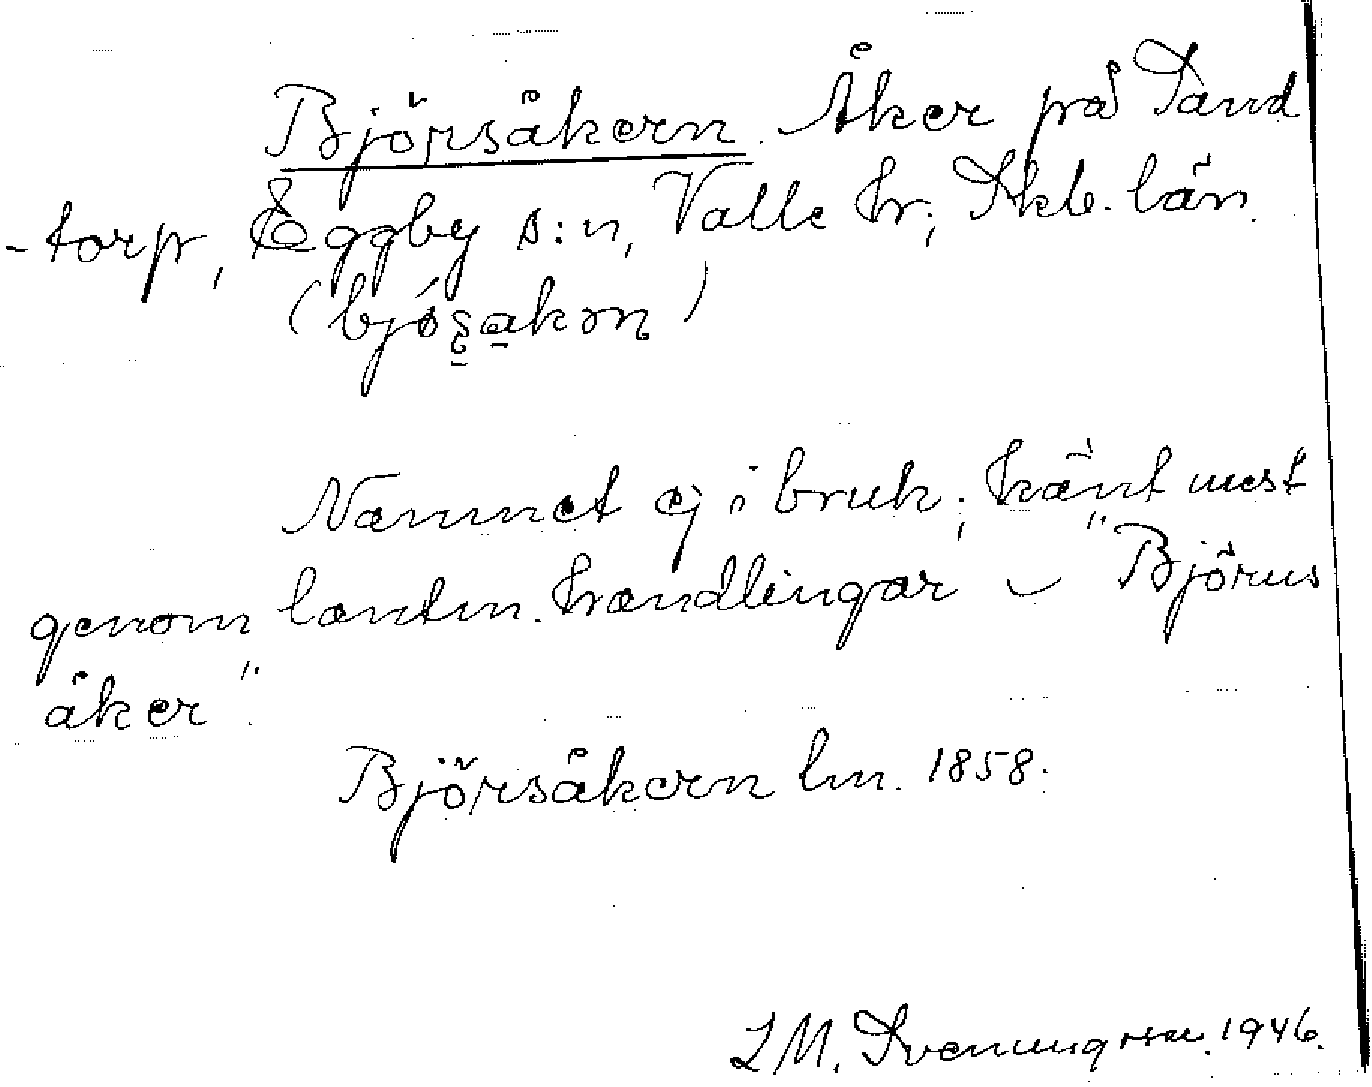 Björsåkern. Åker på Sand
-torp, Eggby s:n, Valle hr; Skb. län.
Namnet ej i bruk; känt mest
genom lantm. handlingar "Björns
åker".
Björsåkern lm. 1858.
L M. Svenungsson. 1946.